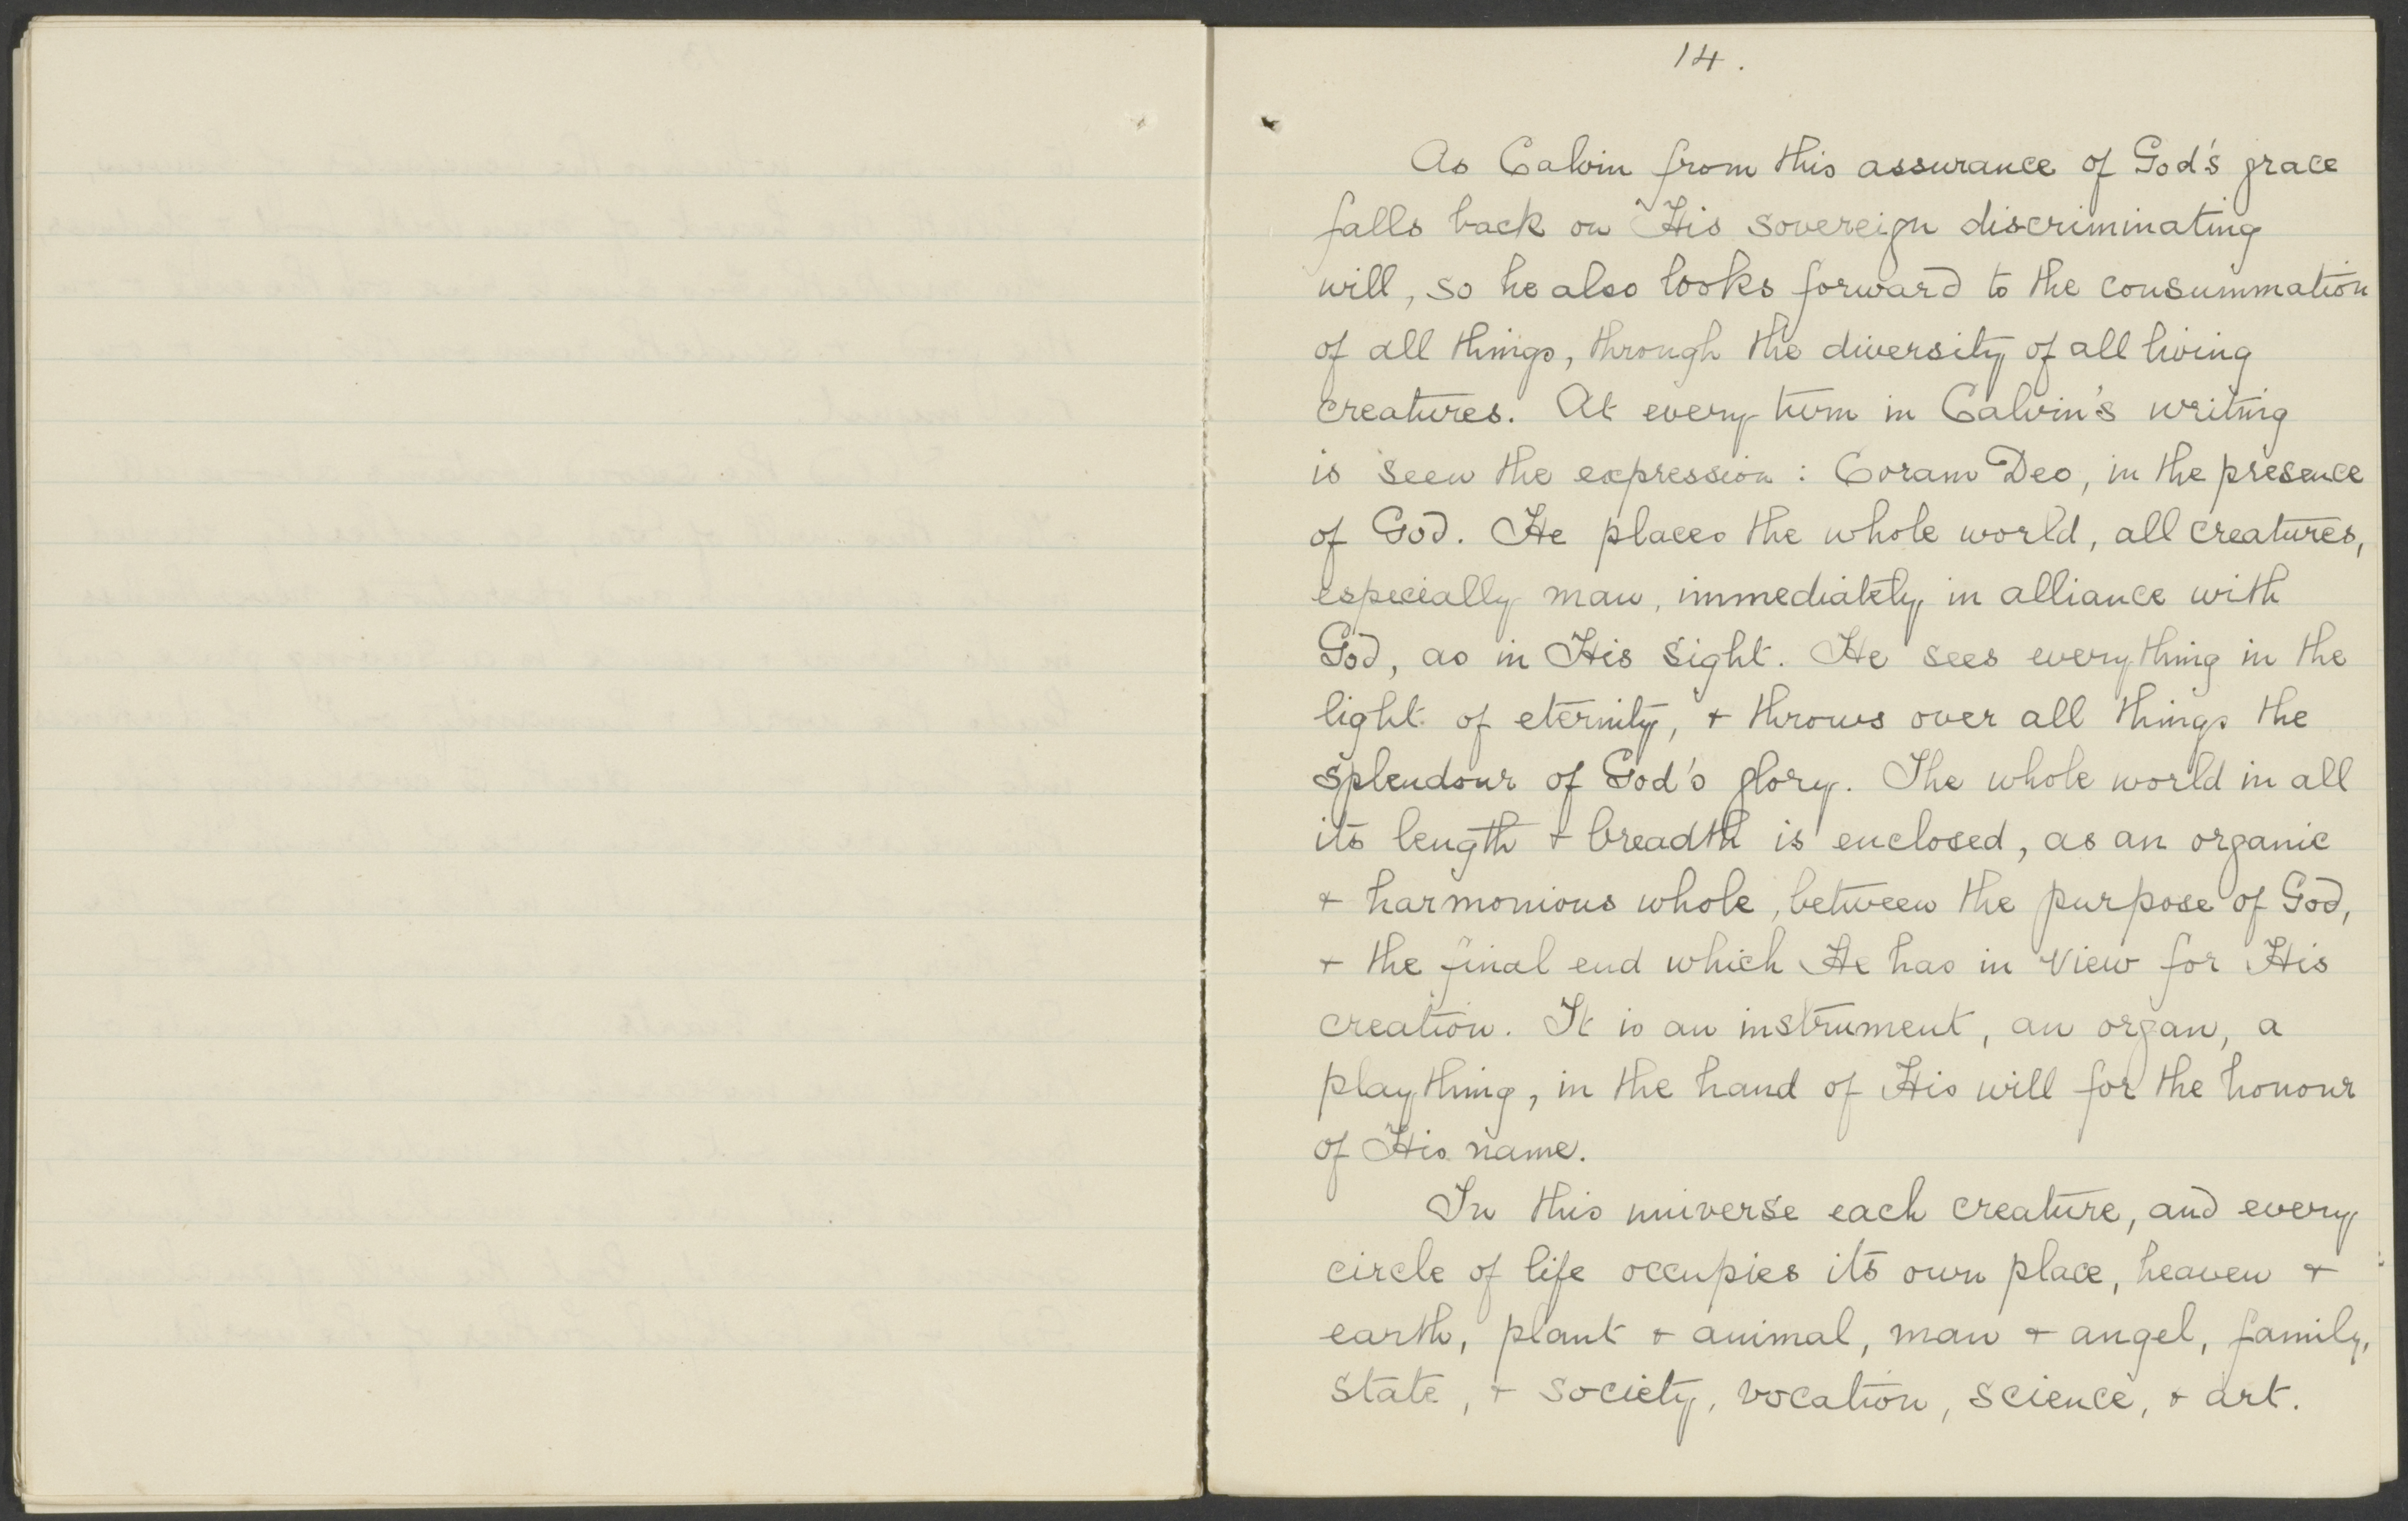 14.
As Calvin from this assurance of God's grace
falls back on His sovereign discriminating
will, so he also looks forward to the consummation
of all things, through the diversity of all living
creatures. At every turn in Calvin's writing
is seen the expression : Coram Deo, in the presence
of God. He places the whole world, all creatures,
especially man, immediately in alliance with
God, as in His sight. He sees everything in the
light of eternity, + throws over all things the
splendour of God's glory. The whole world in all
its length + breadth is enclosed, as an organic
+ harmonious whole, between the purpose of God,
+ the final end which He has in view for His
creation. It is an instrument, an organ, a
plaything, in the hand of His will for the honour
of His name.
In this universe each creature, and every
circle of life occupies its own place, heaven +
earth, plant + animal, man + angel, family,
state, + society, vocation, science, + art.